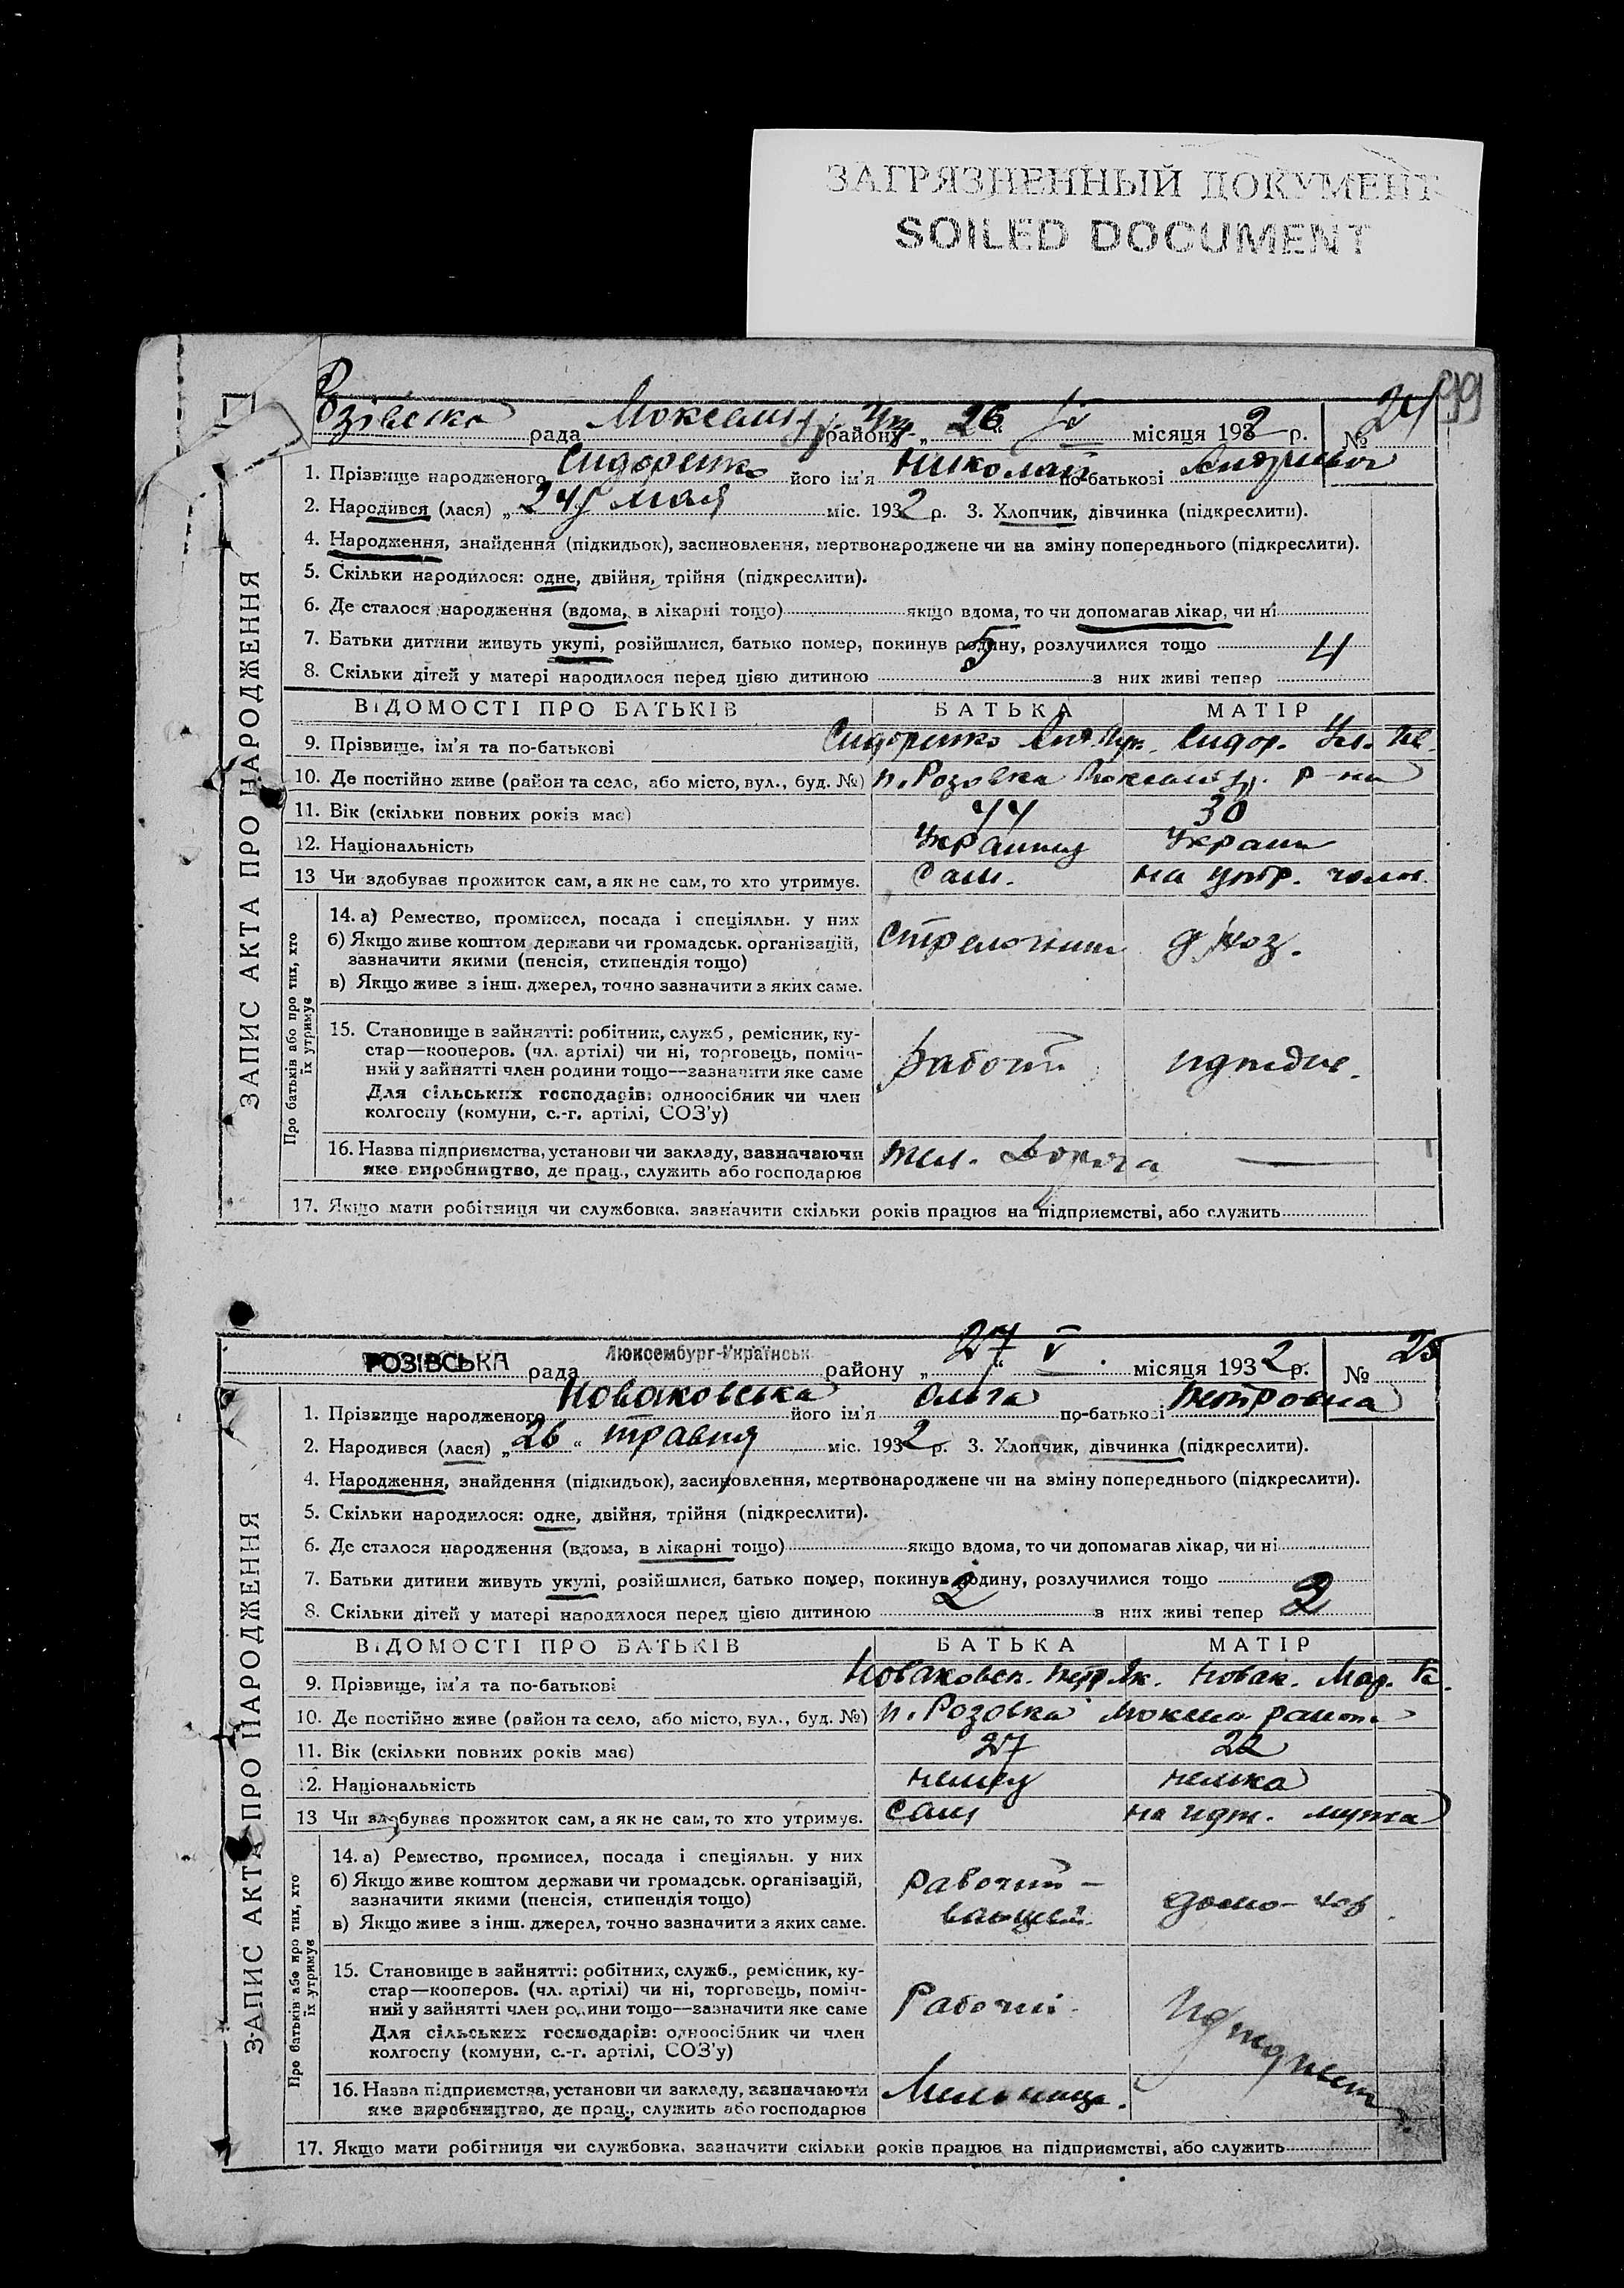 ЗАГРЯЗНЕННЫЙ ДОКУМЕНТ
SOILED DOCUMENT
99
Розівська рада района „26“ V місяця 1932 р. № 24
ЗАПИС АКТА ПРО НАРОДЖЕННЯ
1. Прізвище народженого Сидоренко його ім'я Николай по-батькові
2. Народився (лася) „24“ мая міс. 1932 р. 3. Хлопчик, дівчинка (підкреслити).
4. Народження, знайдення (підкидьок), засиновлення, мертвонароджене чи на зміну попереднього (підкреслити).
5. Скільки народилося: одне, двійня, трійня (підкреслити).
6. Де сталося народження (вдома, в лікарні тощо) якщо вдома, то чи допомагав лікар, чи ні
7. Батьки дитини живуть укупі, розійшлися, батько помер, покинув родину, розлучилися тощо
8. Скільки дітей у матері народилося перед цією дитиною 5 з них живі тепер 4
ВІДОМОСТІ ПРО БАТЬКІВ БАТЬКА МАТІР
9. Прізвище, ім'я та по-батькові Сидоренко Сидор.
10. Де постійно живе (район та село, або місто, вул., буд. №) п. Розовка р-на
11. Вік (скільки повних років має) 44 30
12. Національність Украинец Украин
13 Чи здобуває прожиток сам, а як не сам, то хто утримує. Сам. на утр.
Про батьків або про тих, хто їх утримує
14. а) Ремество, промисел, посада і спеціяльн. у них
б) Якщо живе коштом держави чи громадськ. організацій,
зазначити якими (пенсія, стипендія тощо)
в) Якщо живе з інш. джерел, точно зазначити з яких саме.
Стрелочник д/хоз.
15. Становище в зайнятті: робітник, служб., ремісник, ку-
стар—кооперов. (чл. артілі) чи ні, торговець, поміч-
ний у зайнятті член родини тощо—зазначити яке саме
Для сільських господарів: одноосібник чи член
колгоспу (комуни, с.-г. артілі, СОЗ'у)
Рабочий
16. Назва підприємства, установи чи закладу, зазначаючи
яке виробництво, де прац., служить або господарює
Жел. Дорога —
17. Якщо мати робітниця чи службовка, зазначити скільки років працює на підприємстві, або служить
РОЗІВСЬКА рада Люксембург-Українськ. району „27“ V місяця 1932 р. № 25
ЗАПИС АКТА ПРО НАРОДЖЕННЯ
1. Прізвище народженого Новаковська його ім'я Ольга по-батькові Петровна
2. Народився (лася) „26“ травня міс. 1932 р. 3. Хлопчик, дівчинка (підкреслити).
4. Народження, знайдення (підкидьок), засиновлення, мертвонароджене чи на зміну попереднього (підкреслити).
5. Скільки народилося: одне, двійня, трійня (підкреслити).
6. Де сталося народження (вдома, в лікарні тощо) якщо вдома, то чи допомагав лікар, чи ні
7. Батьки дитини живуть укупі, розійшлися, батько помер, покинув родину, розлучилися тощо
8. Скільки дітей у матері народилося перед цією дитиною 2 з них живі тепер 2
ВІДОМОСТІ ПРО БАТЬКІВ БАТЬКА МАТІР
9. Прізвище, ім'я та по-батькові Новаковск. Петр Як. Новак. Мар.
10. Де постійно живе (район та село, або місто, вул., буд. №) п. Розовка
11. Вік (скільки повних років має) 27 22
12. Національність немец немка
13 Чи здобуває прожиток сам, а як не сам, то хто утримує. Сам на мужа
Про батьків або про тих, хто їх утримує
14. а) Ремество, промисел, посада і спеціяльн. у них
б) Якщо живе коштом держави чи громадськ. організацій,
зазначити якими (пенсія, стипендія тощо)
в) Якщо живе з інш. джерел, точно зазначити з яких саме.
Рабочий - домо-хоз
15. Становище в зайнятті: робітник, служб., ремісник, ку-
стар—кооперов. (чл. артілі) чи ні, торговець, поміч-
ний у зайнятті член родини тощо—зазначити яке саме
Для сільських господарів: одноосібник чи член
колгоспу (комуни, с.-г. артілі, СОЗ'у)
Рабочий
16. Назва підприємства, установи чи закладу, зазначаючи
яке виробництво, де прац., служить або господарює
Мельница.
17. Якщо мати робітниця чи службовка, зазначити скільки років працює на підприємстві, або служить